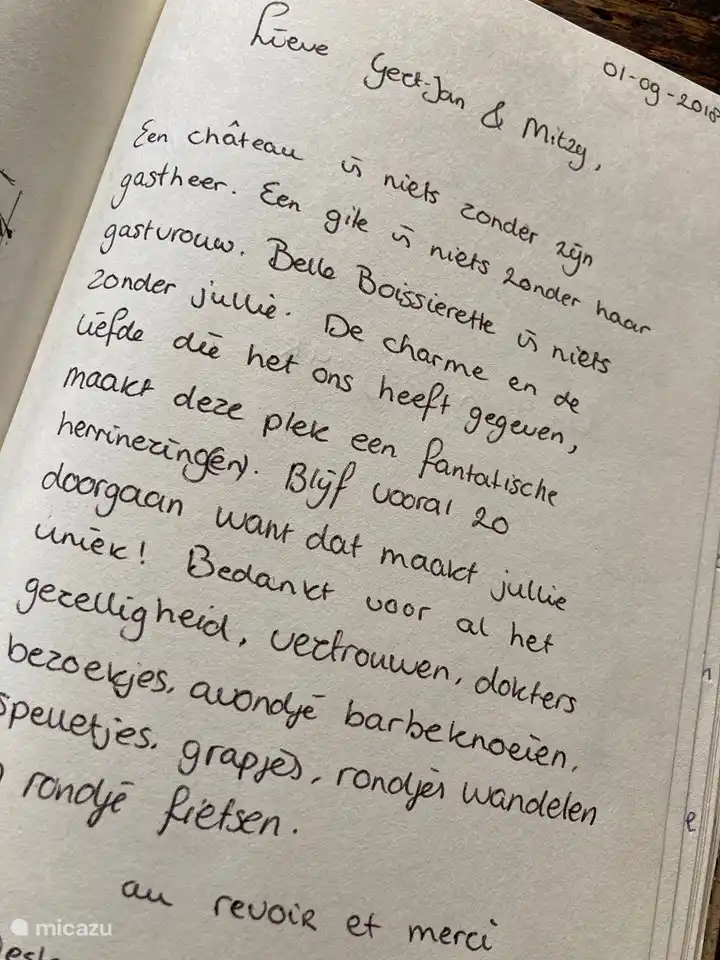 01-09-2018
Lieve Geert-Jan & Mitzy,
Een château is niets zonder zijn
gastheer. Een gite is niets zonder haar
gastvrouw. Belle Boissierette is niets
zonder jullie. De charme en de
liefde die het ons heeft gegeven,
maakt deze plek een fantatische
herrinering(en). Blijf vooral zo
doorgaan want dat maakt jullie
uniek! Bedankt voor al het
gezelligheid, vertrouwen, dokters
bezoekjes, avondje barbeknoeien,
spelletjes, grapjes, rondjes wandelen
rondje fietsen.
au revoir et merci
micazu